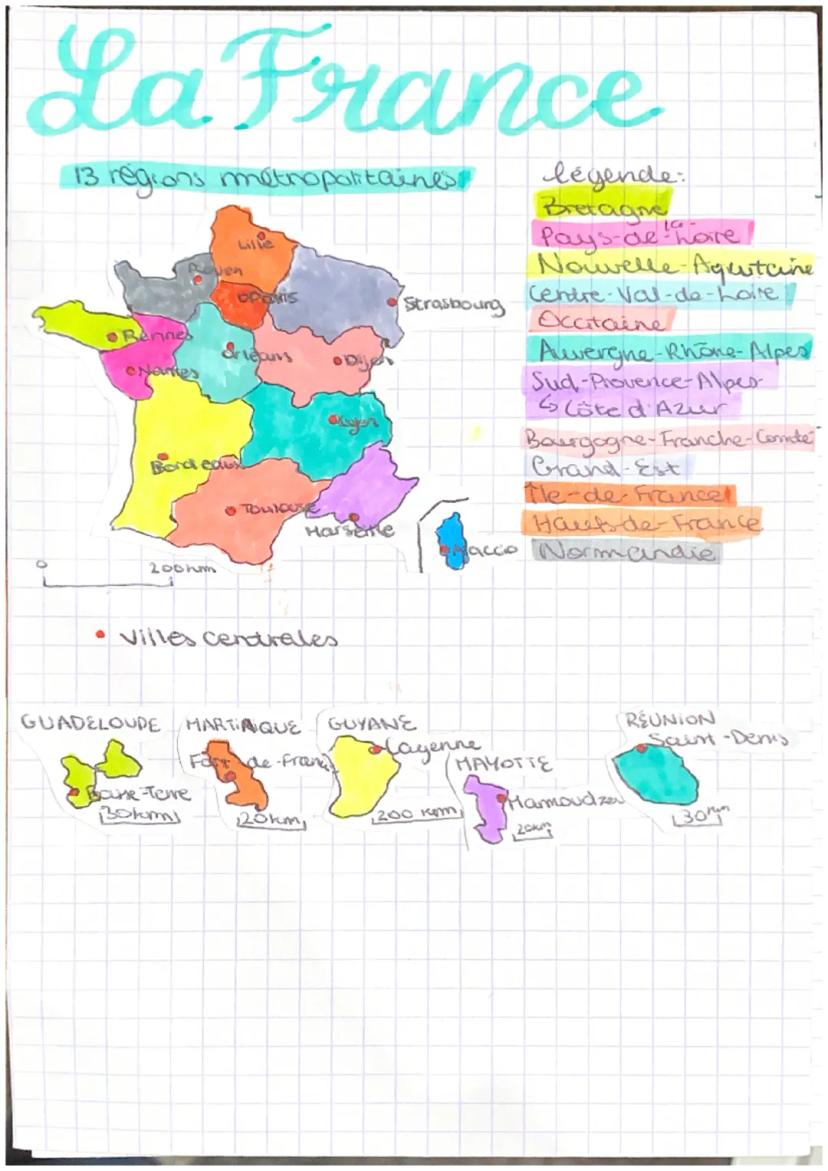 La France
13 régions métropolitaines
légende:
Bretagne
Pays-de-la-Loire
Nouvelle-Aquitaine
Centre-Val-de-Loire
Occitaine
Auvergne-Rhône-Alpes
Sud-Provence-Alpes-
↳ Côte d'Azur
Bourgogne-Franche-Comté
Grand-Est
Île-de-France
Hauts-de-France
Normandie
Lille
Rouen
Paris
Strasbourg
Rennes
Orléans
Dijon
Nantes
Lyon
Bordeaux
Toulouse
Marseille
Ajaccio
0
200 km
Villes centrales
GUADELOUPE
Basse-Terre
30 km
MARTINIQUE
Fort-de-France
20 km
GUYANE
Cayenne
200 km
MAYOTTE
Mamoudzou
20km
RÉUNION
Saint-Denis
30 km